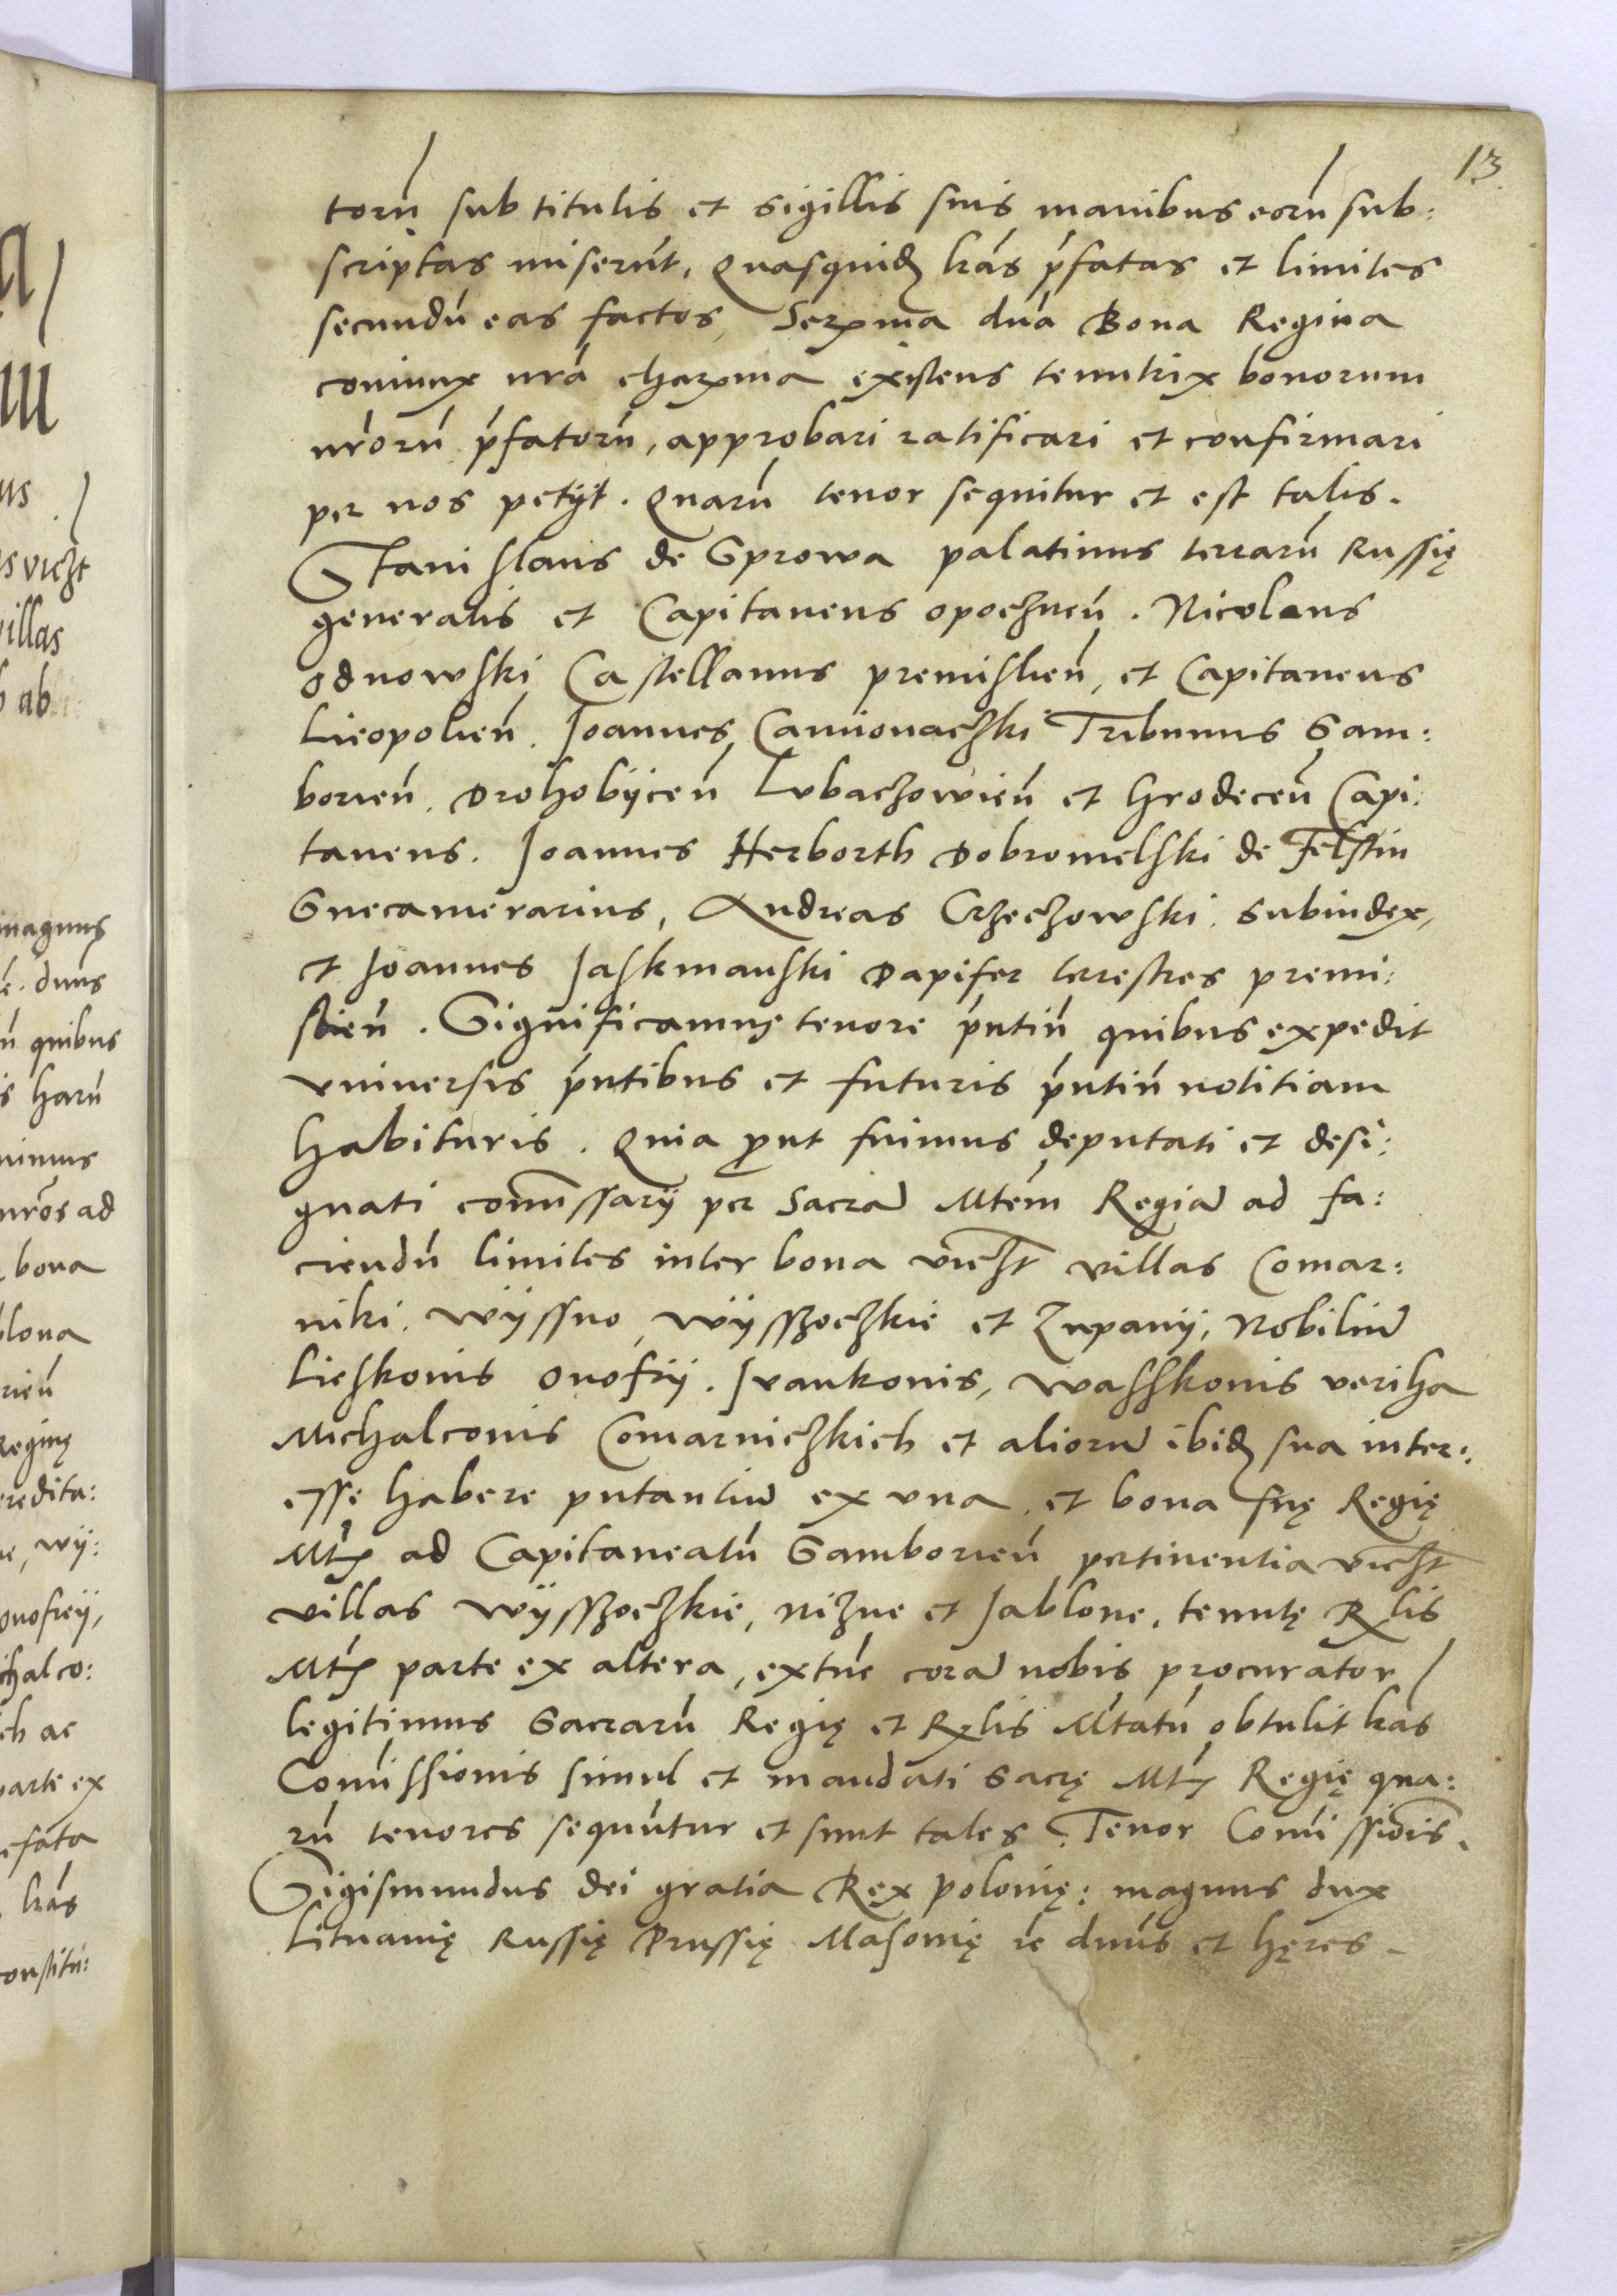 13
torū sub titulis et sigillis suis manibus eorū sub:
scriptas miserūt, Quasquidē lrās p̄fatas et limites
secundū eas factos, Serma dna Bona Regina
coniunx nrā charma existens tenutrix bonorum
nrōrū p̄fatorū, approbari ratificari et confirmari
per nos petijt. Quarū tenor sequitur et est talis.
Stanislaus de Sprowa palatinus terrarū Russię
generalis et Capitaneus opocznēn. Nicolaus
odnowski Castellanus premislieñ, et Capitaneus
Lieopolieñ. Joannes Camionaczki Tribunus Sam:
borieñ. Drohobÿceñ Lubaczowieñ et Hrodeceñ Capi:
taneus. Joannes Herborth Dobromelski de Felstin
Succamerarius, Andreas Crzeczowski Subiudex,
et Joannes Jaskmanski Dapifer terrestres premi:
slieñ. Significamus tenore p̄ntiū quibus expedit
vniuersis p̄ntibus et futuris p̄ntiū notitiam
habituris. Quia p̱ut fuimus deputati et desi:
gnati com̄issarij per Sacrā Mtēm Regiā ad fa:
ciendū limites inter bona vicz̄t villas Comar:
niki, Wÿssno, Wÿsszoczkie et Zupanij, Nobiliū
Lieskonis Onofrij. Jvankonis, Wasskonis veriha
Michalconis Comarniczkich et aliorū ibidē sua inter:
esse habere putantiū ex vna, et bona suę Regię
Mtꝭ ad Capitaneatū Samborieñ pertinentia vicz̄t
villas Wÿsszoczkie, Nizne et Jablone, tenutę Rlis
Mtꝭ parte ex altera, extūc corā nobis procurator
legitimus Sacrarū Regię et Rlis Mtatū obtulit lrās
Com̄issionis simul et mandati Sacrę Mtꝭ Regię qua:
rū tenores sequūtur et sunt tales. Tenor Com̄issiōis.
Sigismundus dei gratia Rex polonię: magnus dux
Lituanię Russię Prussię Masouię rc dnūs et hęres.